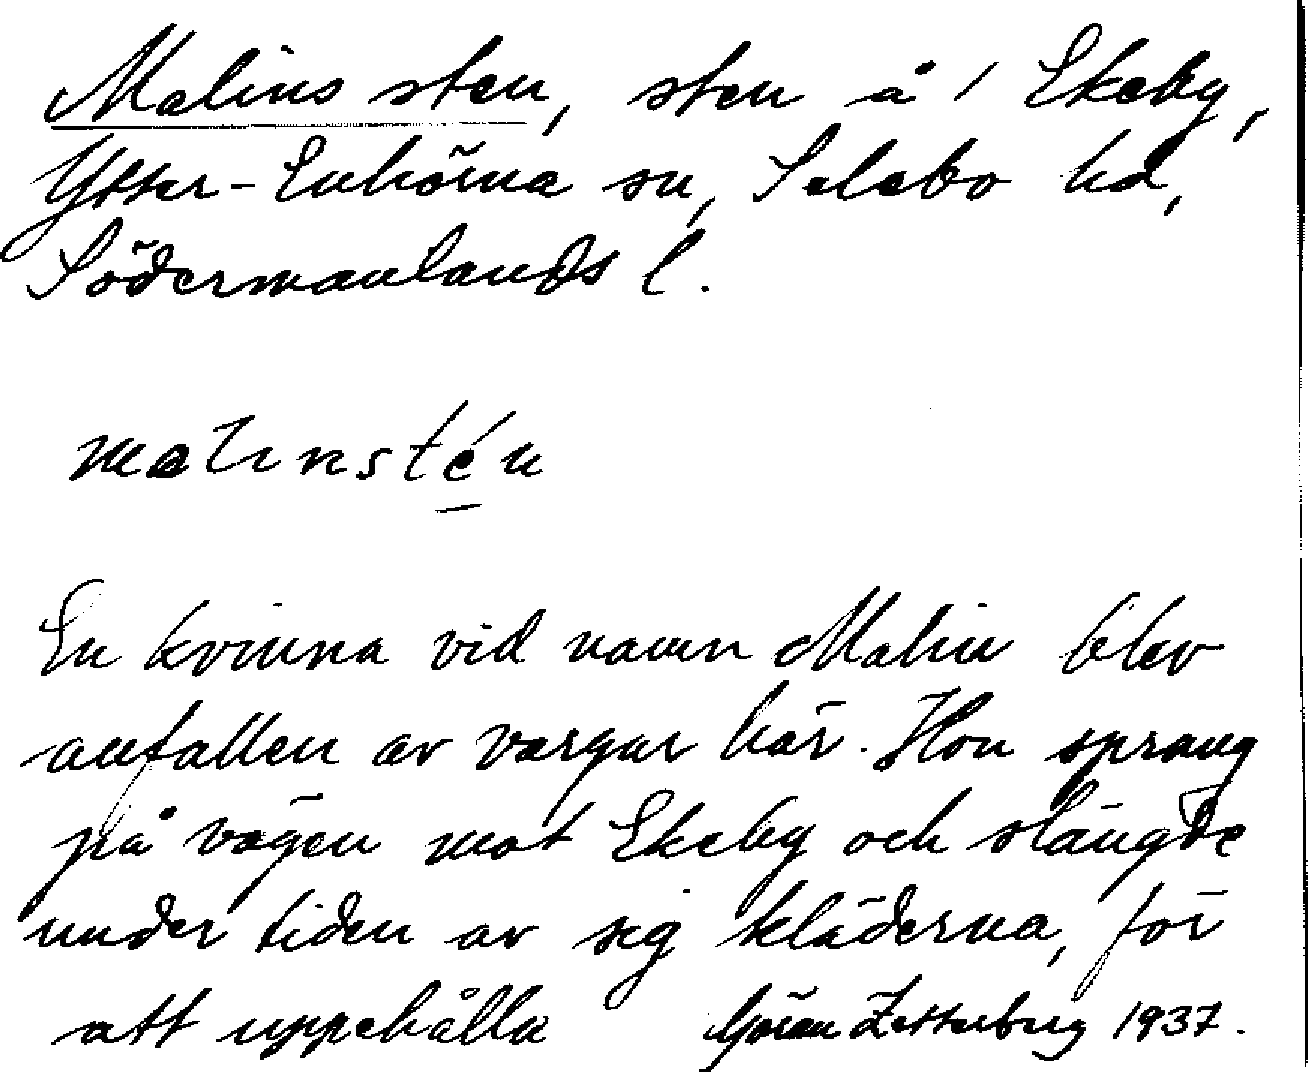 Malins sten, sten å 1 Ekeby,
Ytter-Enhörna sn, Selebo hd,
Södermanlands l.
malinstén
En kvinna vid namn Malin blev
anfallen av vargar här. Hon sprang
på vägen mot Ekeby och slängde
under tiden av sig kläderna, för
att uppehålla Göran Zetterberg 1937.